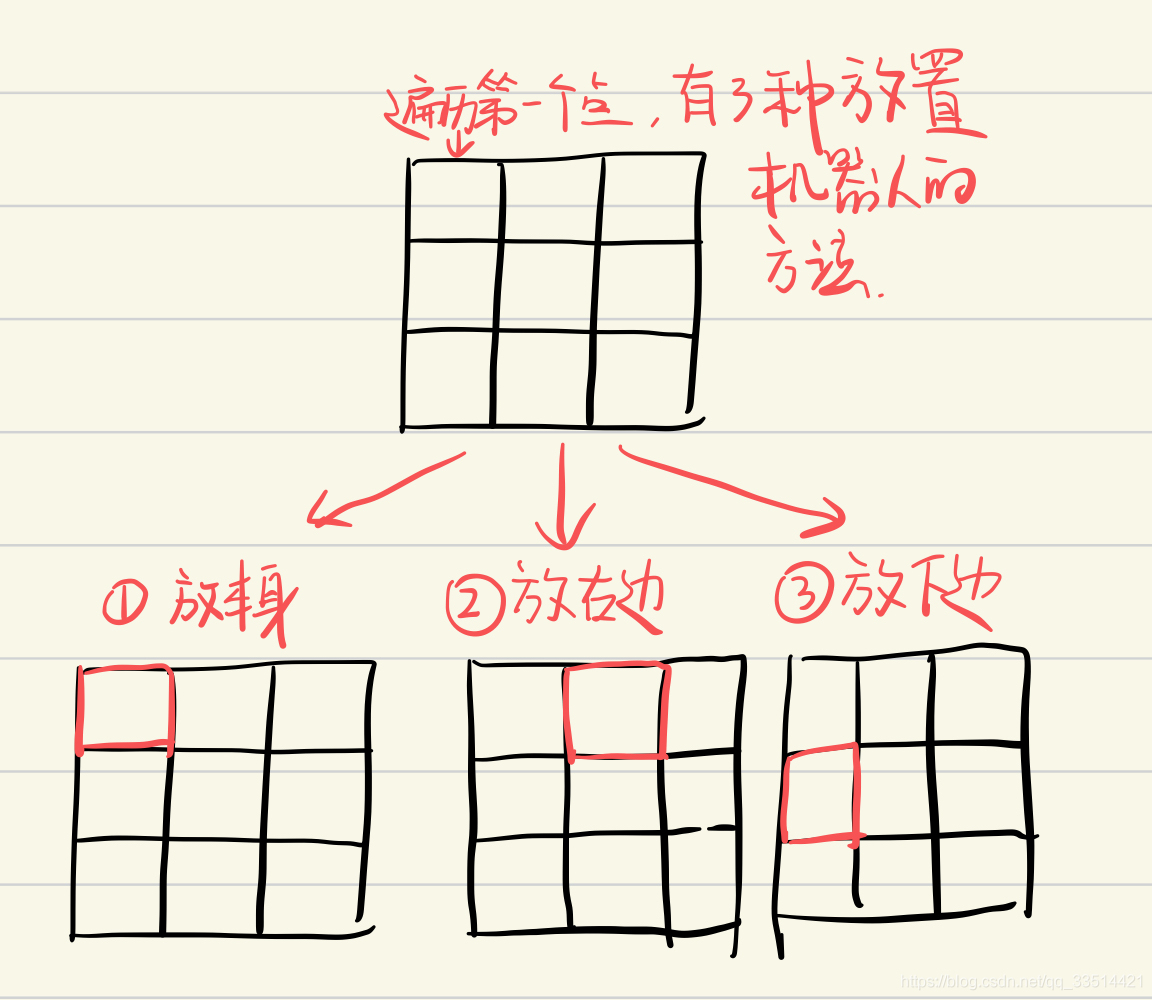 遍历第一个位,有3种放置
机器人的
方法.
① 放本身
② 放右边
③ 放下边
https://blog.csdn.net/qq_33514421